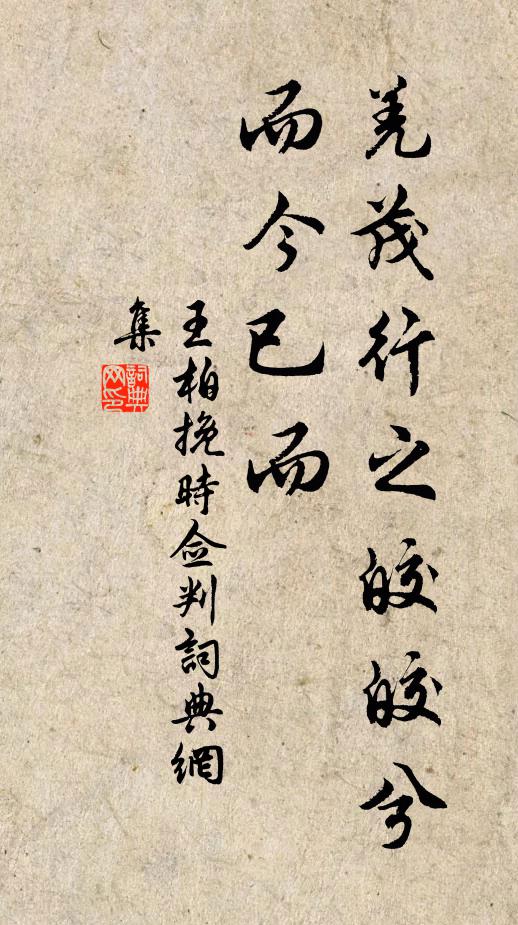 羌茂行之皎皎兮
而今已而
王柏挽時僉判詞典網
集
詞典
网印